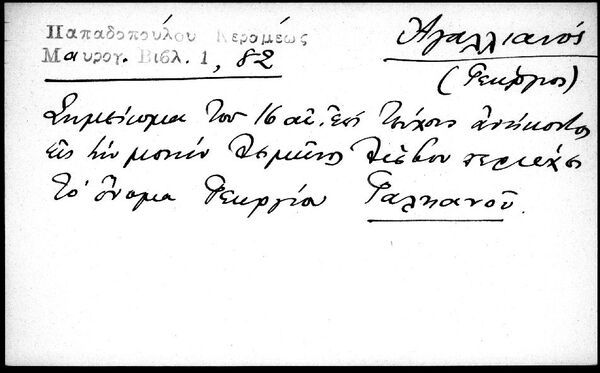 Παπαδοπούλου Κεραμέως
Μαυρογ. Βιβλ. 1, 82
Ἀγαλλιανός
(Γεώργιος)
Σημείωμα τοῦ 16 αἰ. ἐπὶ τεύχους ἀνήκοντος
εἰς τὴν μονὴν Λειμῶνος Λέσβου περιέχει
τὸ ὄνομα Γεωργίου Γαλιανοῦ.